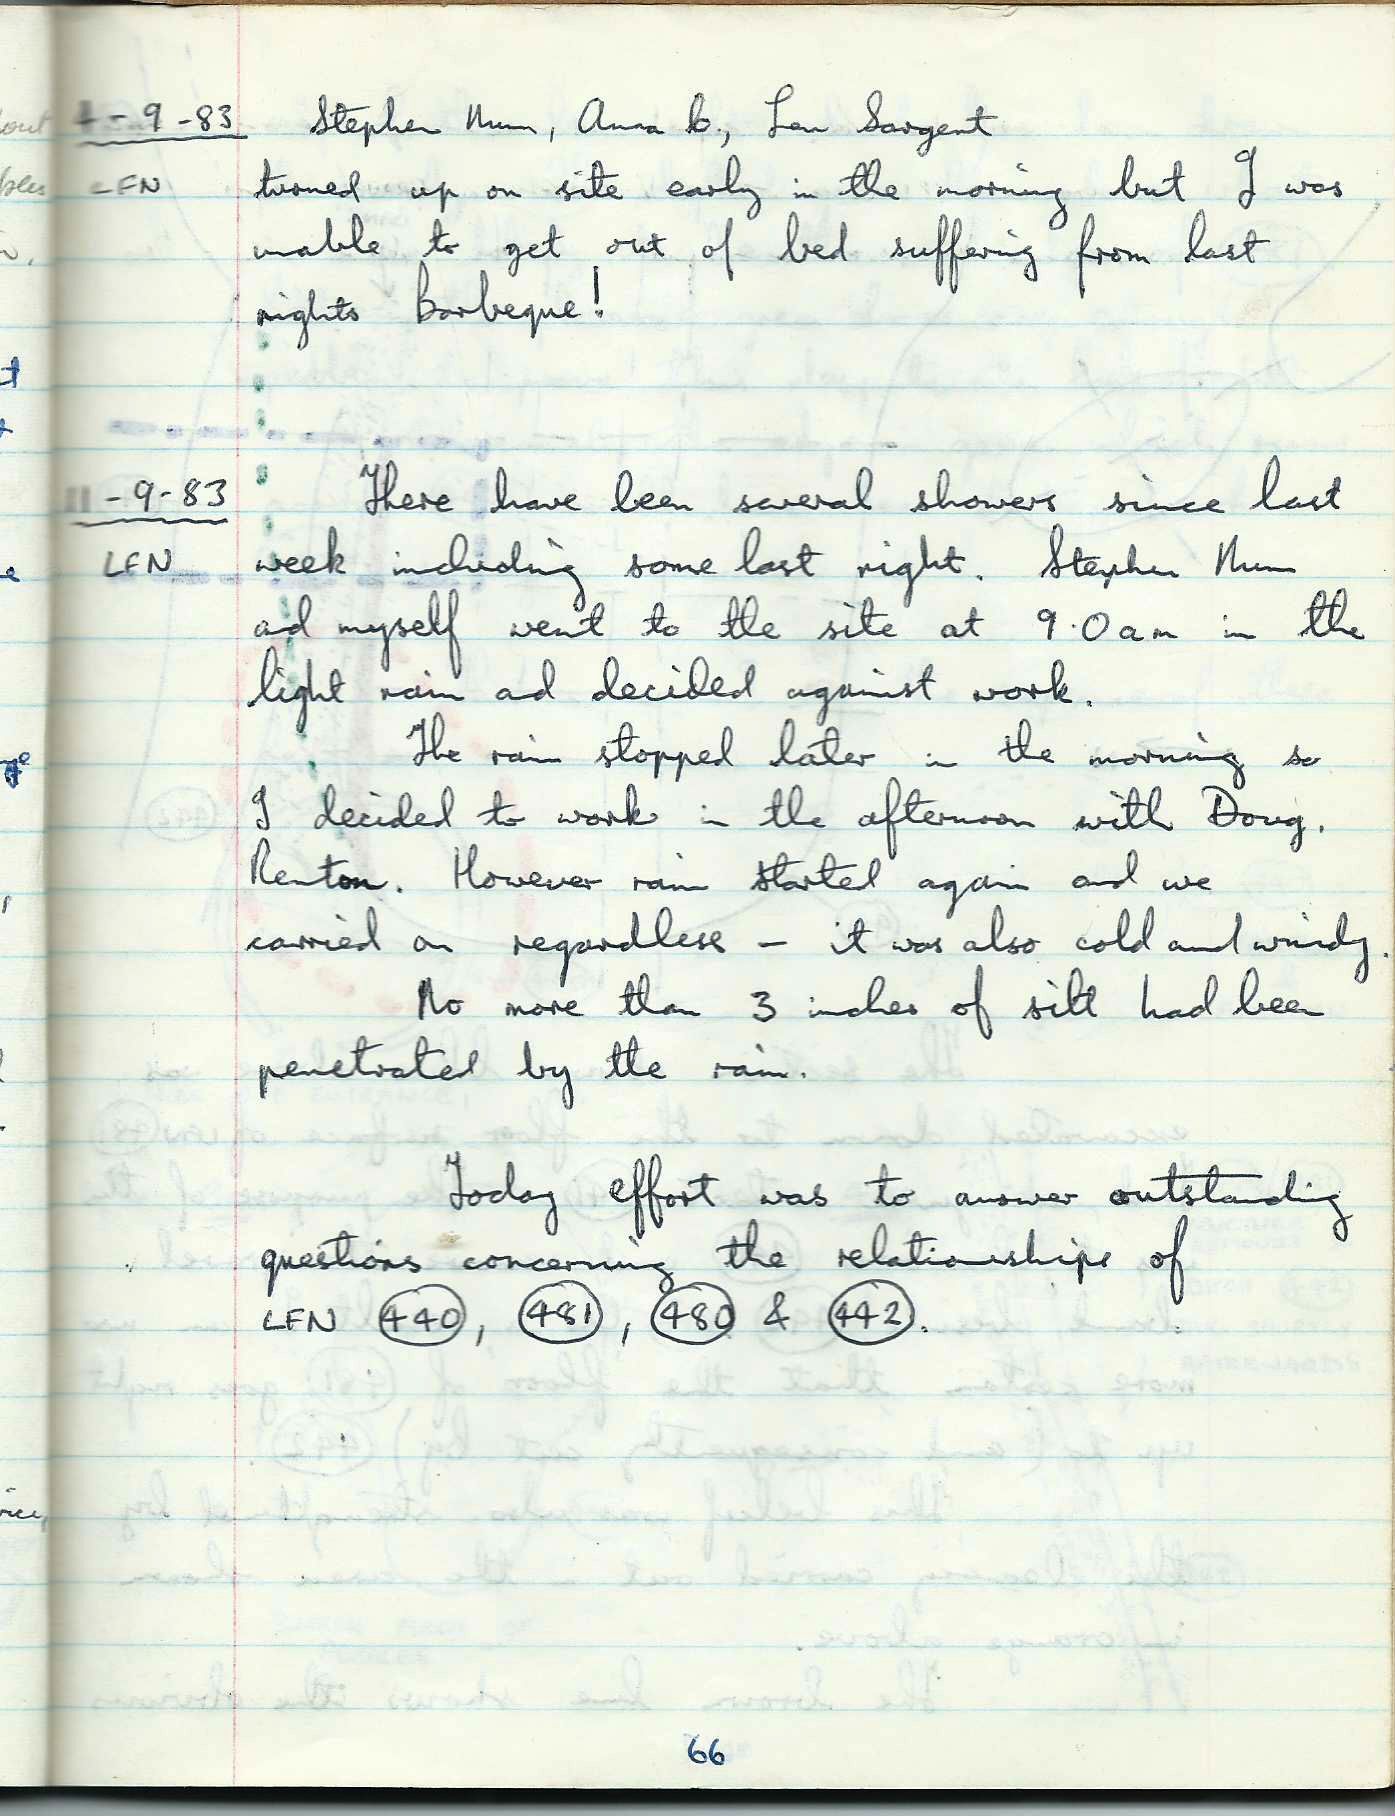 4-9-83 Stephen Nunn, Anna B., Len Sargent
LFN turned up on site early in the morning but I was
unable to get out of bed suffering from last
nights Barbeque!
11-9-83 There have been several showers since last
LFN week including some last night. Stephen Nunn
and myself went to the site at 9.0am in the
light rain and decided against work.
The rain stopped later in the morning so
I decided to work in the afternoon with Doug.
Renton. However rain started again and we
carried on regardless - it was also cold and windy.
No more than 3 inches of silt had been
penetrated by the rain.
Today effort was to answer outstanding
questions concerning the relationships of
LFN 440, 481, 480 & 442.
66